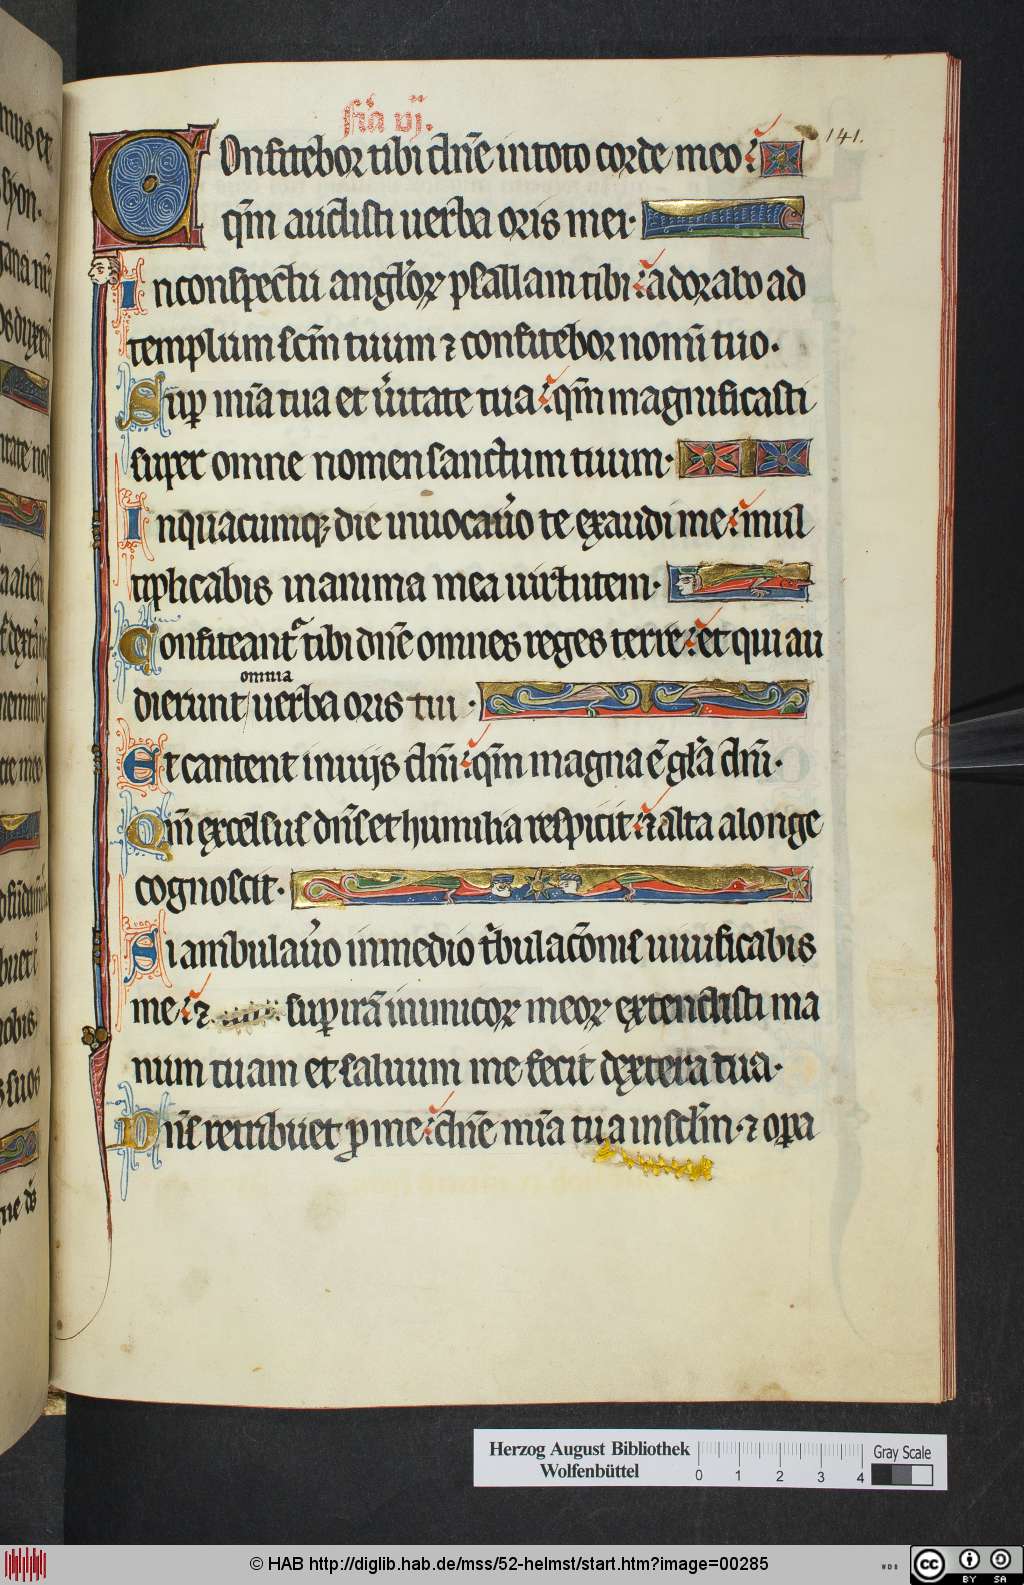 fīa vj.
141.
Confitebor tibi dn̄e in toto corde meo
qm̄ audisti uerba oris mei.
In conspectu anglōꝝ psallam tibi adorabo ad
templum scm̄ tuum ⁊ confitebor nomī tuo.
Sup̄ mīa tua et u̾itate tua qm̄ magnificasti
super omne nomen sanctum tuum.
In quacumqꝫ die inuocau̾o te exaudi me mul
tiplicabis in anima mea uirtutem.
Confiteant᷑ tibi dn̄e omnes reges terre et qui au
omnia
dierunt uerba oris tui.
Et cantent in uijs dn̄i qm̄ magna ē gl̄a dn̄i.
Qm̄ excelsus dn̄s et humilia respicit ⁊ alta a longe
cognoscit.
Si ambulau̾o in medio t̾bulac̄onis uiuificabis
me ⁊ sup̄ irā inimicoꝝ meoꝝ extendisti ma
num tuam et saluum me fecit dextera tua.
Dn̄s retribuet ꝓ me dn̄e mīa tua in sclm̄ ⁊ oꝑa
Herzog August Bibliothek
Wolfenbüttel
0 1 2 3 4
Gray Scale
© HAB http://diglib.hab.de/mss/52-helmst/start.htm?image=00285
cc BY SA